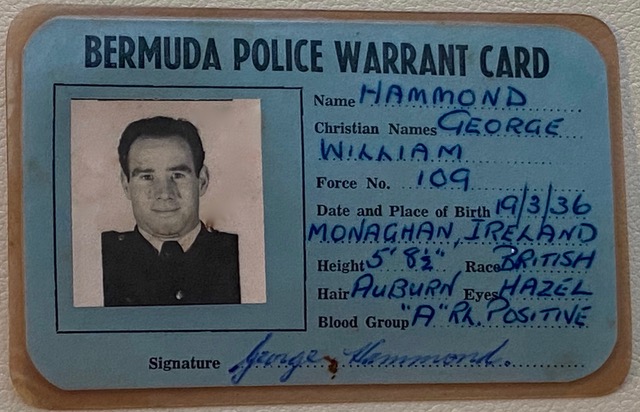 BERMUDA POLICE WARRANT CARD
Name HAMMOND
Christian Names GEORGE
WILLIAM
Force No. 109
Date and Place of Birth 19/3/36
MONAGHAN, IRELAND
Height 5' 8½" Race BRITISH
Hair AUBURN Eyes HAZEL
Blood Group "A" Rh. POSITIVE
Signature George Hammond.